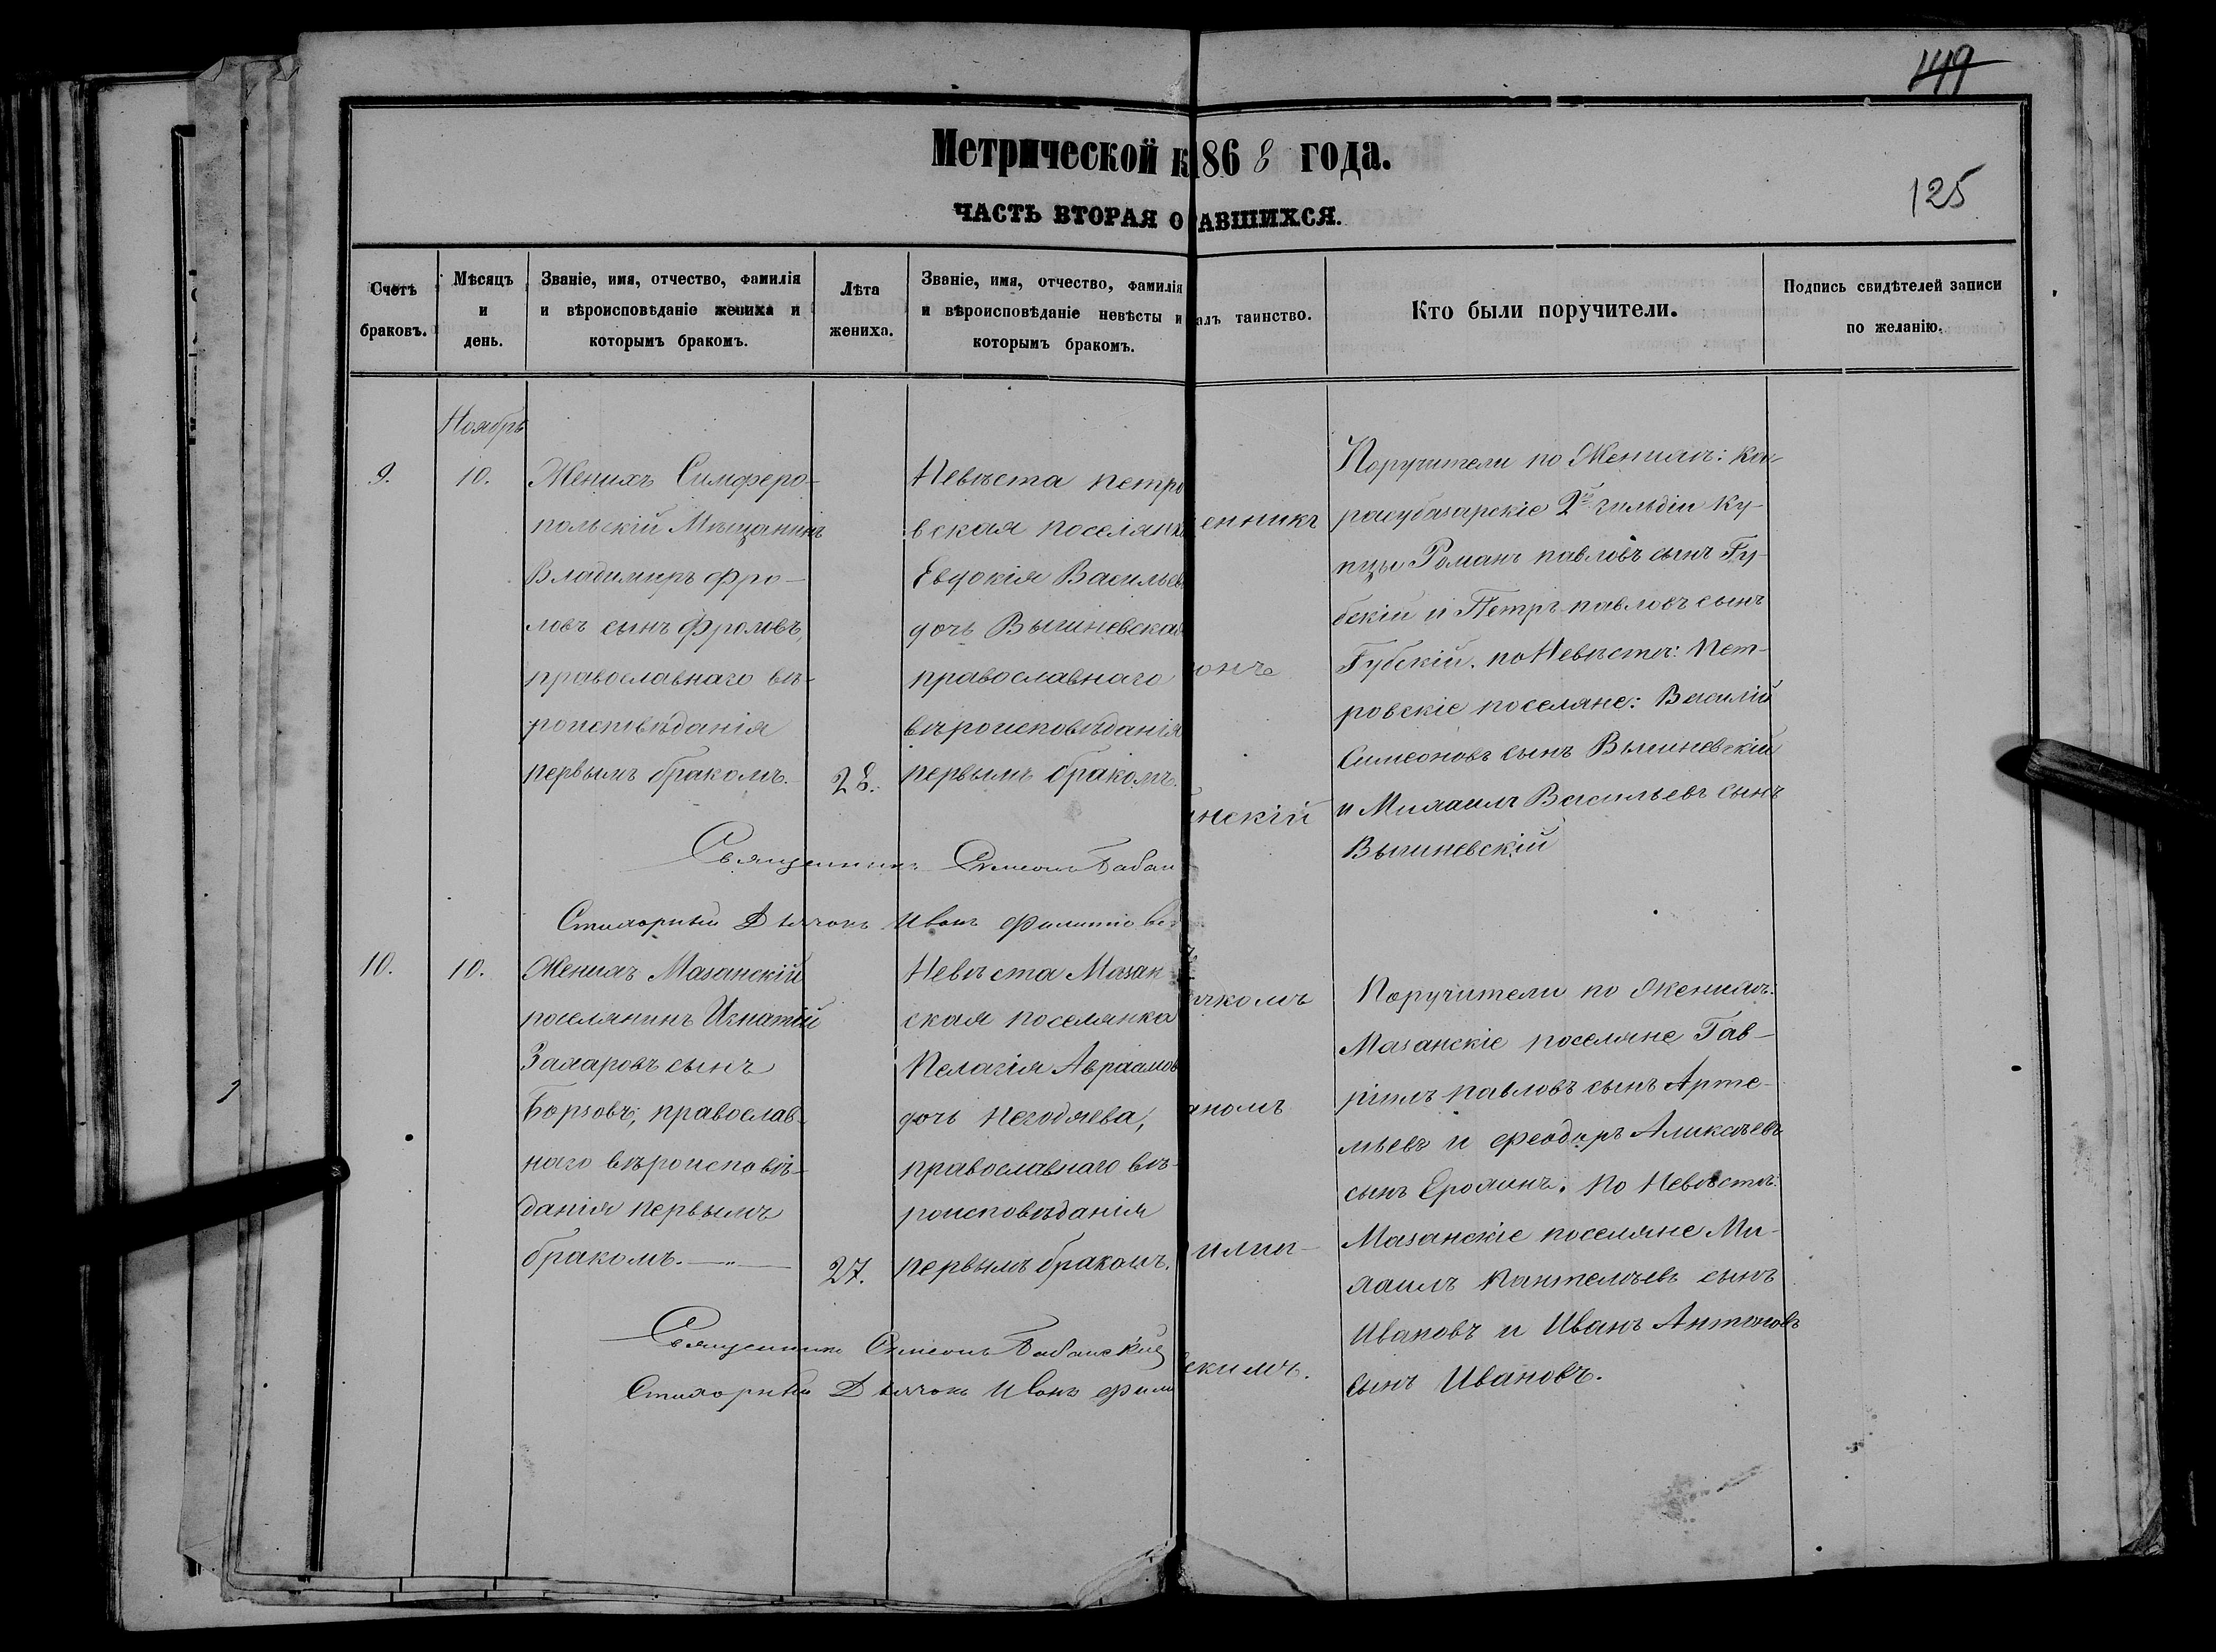 149
Метрической к
186 8 года.
125
ЧАСТЬ ВТОРАЯ О
АВШИХСЯ.
Счетъ
браковъ.
Мѣсяцъ
и
день.
Званіе, имя, отчество, фамилія
и вѣроисповѣданіе жениха и
которымъ бракомъ.
Лѣта
жениха.
Званіе, имя, отчество, фамилія
и вѣроисповѣданіе невѣсты и
которымъ бракомъ.
алъ таинство.
Кто были поручители.
Подпись свидѣтелей записи
по желанію.
Ноябрь
9.
10.
Женихъ Симферо-
польскій Мѣщанинъ
Владимиръ Фро-
ловъ сынъ Фроловъ,
православнаго вѣ-
роисповѣданія
первымъ бракомъ.
28.
Невѣста петро
вская поселянка
Евдокія Васильев
дочь Вышневская
православнаго
вѣроисповѣданія
первымъ бракомъ.
енникъ
онъ
нскій
Поручители по Женихѣ: Ка-
расубазарскіе 2й гильдіи Ку-
пцы Романъ павловъ сынъ Гу-
бскій и Петръ павловъ сынъ
Губскій. по Невѣстѣ: Пет-
ровскіе поселяне: Василій
Симеоновъ сынъ Вышневскій
и Михаилъ Васильевъ сынъ
Вышневскій
Священникъ Симеонъ Бабан
Стихорный Дьячокъ Иванъ Филиппов
10.
10.
Женихъ Мазанскій
поселянинъ Игнатій
Захаровъ сынъ
Борзовъ, православ-
наго вѣроисповѣ-
данія первымъ
бракомъ.
27.
Невѣста Мазан
ская поселянка
Пелагія Авраамов
дочь Негодяева,
православнаго вѣ-
роисповѣданія
первымъ бракомъ.
комъ
номъ
илип-
скимъ.
Поручители по Женихѣ:
Мазанскіе поселяне Гав-
ріилъ Павловъ сынъ Арте-
мьевъ и Феодоръ Аликсѣевъ
сынъ Ерохинъ. По Невѣстѣ:
Мазанскіе поселяне Ми-
хаилъ Пантелѣевъ сынъ
Ивановъ и Иванъ Антоновъ
сынъ Ивановъ.
Священникъ Симеонъ Бабанскій
Стихорный Дьячокъ Иванъ Фили